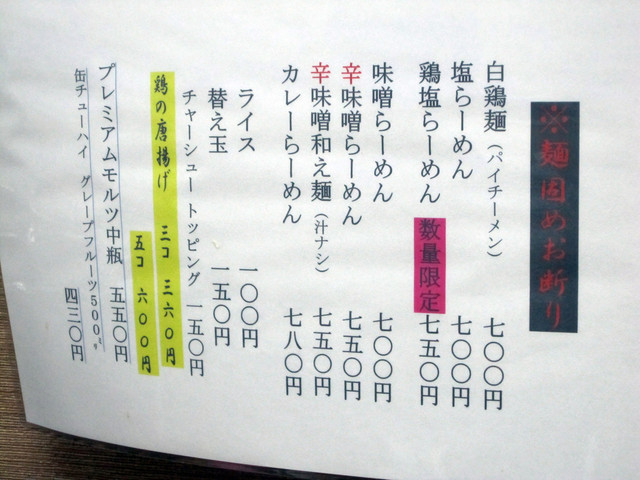 ※麺固めお断り
白鶏麺（パイチーメン） 七〇〇円
塩らーめん 七〇〇円
鶏塩らーめん 数量限定 七五〇円
味噌らーめん 七〇〇円
辛味噌らーめん 七五〇円
辛味噌和え麺（汁ナシ） 七五〇円
カレーらーめん 七八〇円
ライス 一〇〇円
替え玉 一五〇円
チャーシュートッピング 一五〇円
鶏の唐揚げ 三コ 三六〇円
五コ 六〇〇円
プレミアムモルツ中瓶 五五〇円
缶チューハイ グレープフルーツ500㍉ 四三〇円